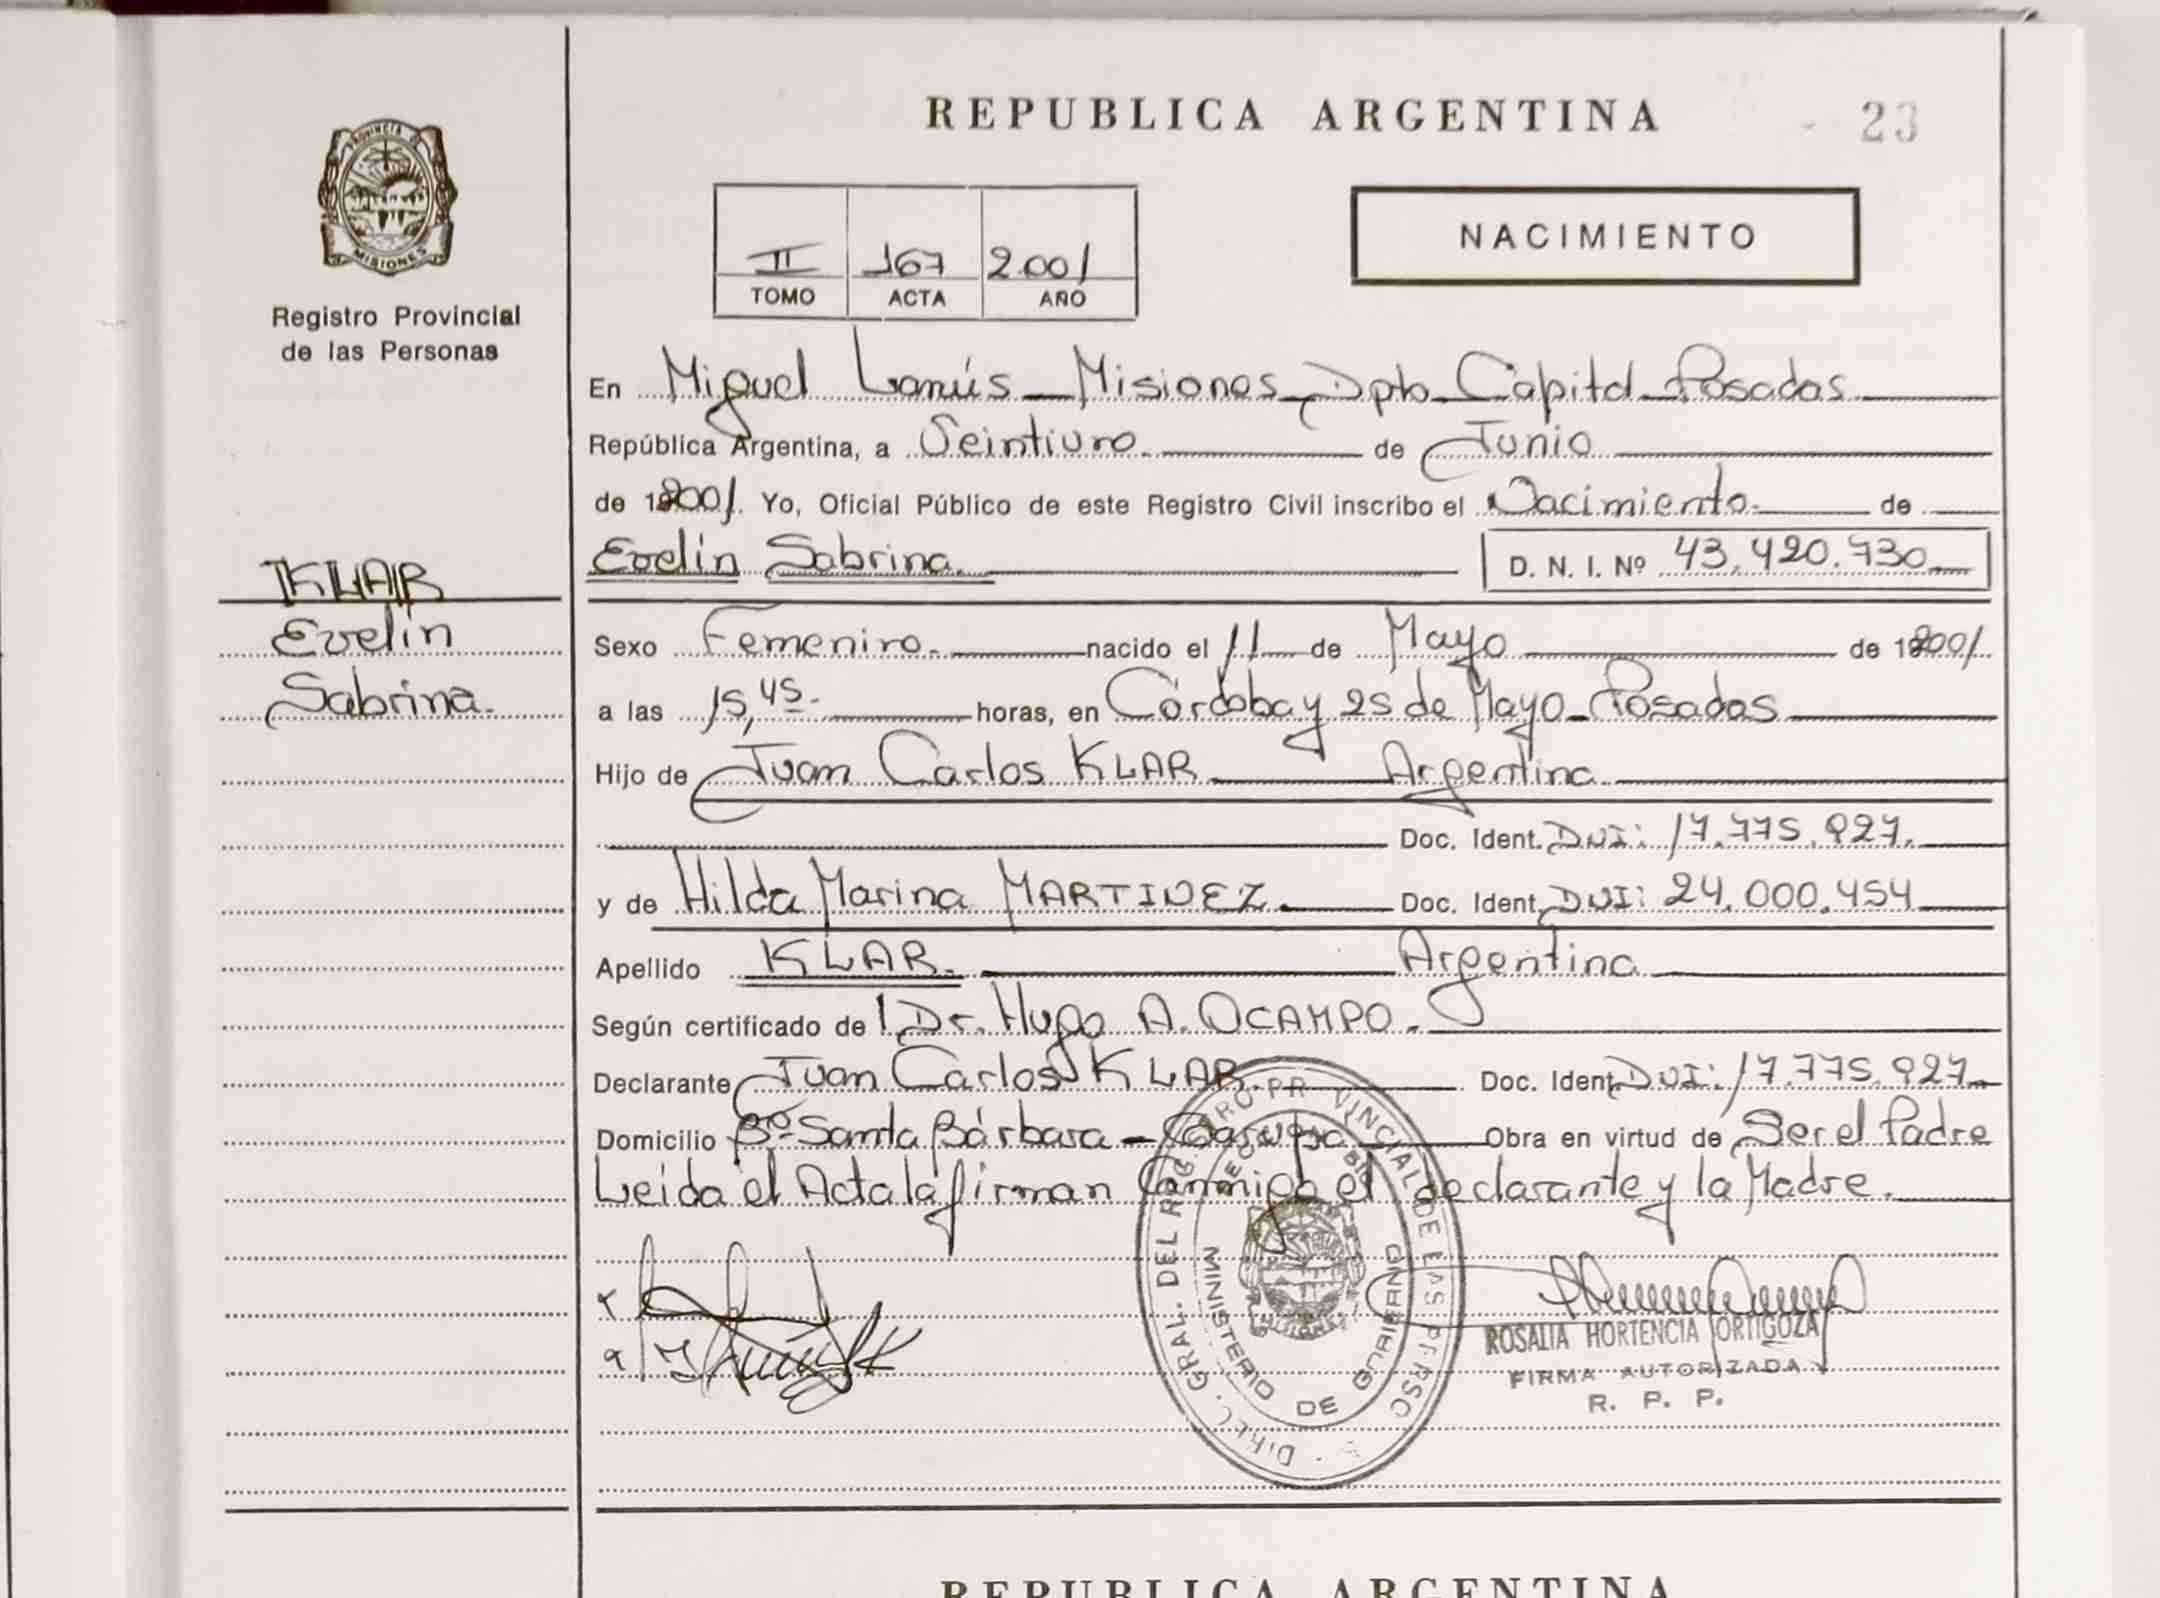 REPUBLICA ARGENTINA
23
PROVINCIA D
MISIONES
Registro Provincial
de las Personas
II 167 2.001
TOMO ACTA AÑO
NACIMIENTO
En Miguel Lanús - Misiones - Dpto Capital - Posadas
República Argentina, a Veintiuno. de Junio
de 2001. Yo, Oficial Público de este Registro Civil inscribo el Nacimiento. de
Evelin Sabrina. D. N. I. Nº 43.420.730
KLAR
Evelin
Sabrina.
Sexo Femenino. nacido el 11 de Mayo de 2001.
a las 15,45. horas, en Córdoba y 25 de Mayo - Posadas
Hijo de Juan Carlos KLAR Argentina
Doc. Ident. DNI: 17.775.927.
y de Hilda Marina MARTINEZ. Doc. Ident. DNI: 24.000.454
Apellido KLAR. Argentina
Según certificado de Dr. Hugo A. OCAMPO.
Declarante Juan Carlos KLAR. Doc. Ident. DNI: 17.775.927
Domicilio Bº Santa Bárbara - Garupá Obra en virtud de Ser el Padre
Leida el Acta la firman Conmigo el declarante y la Madre.
DIREC. GRAL. DEL REGISTRO PR VINCIAL DE LAS PERSO
MINISTERIO DE GOBIERNO
ROSALIA HORTENCIA ORTIGOZA
FIRMA AUTORIZADA
R. P. P.
REPUBLICA ARGENTINA